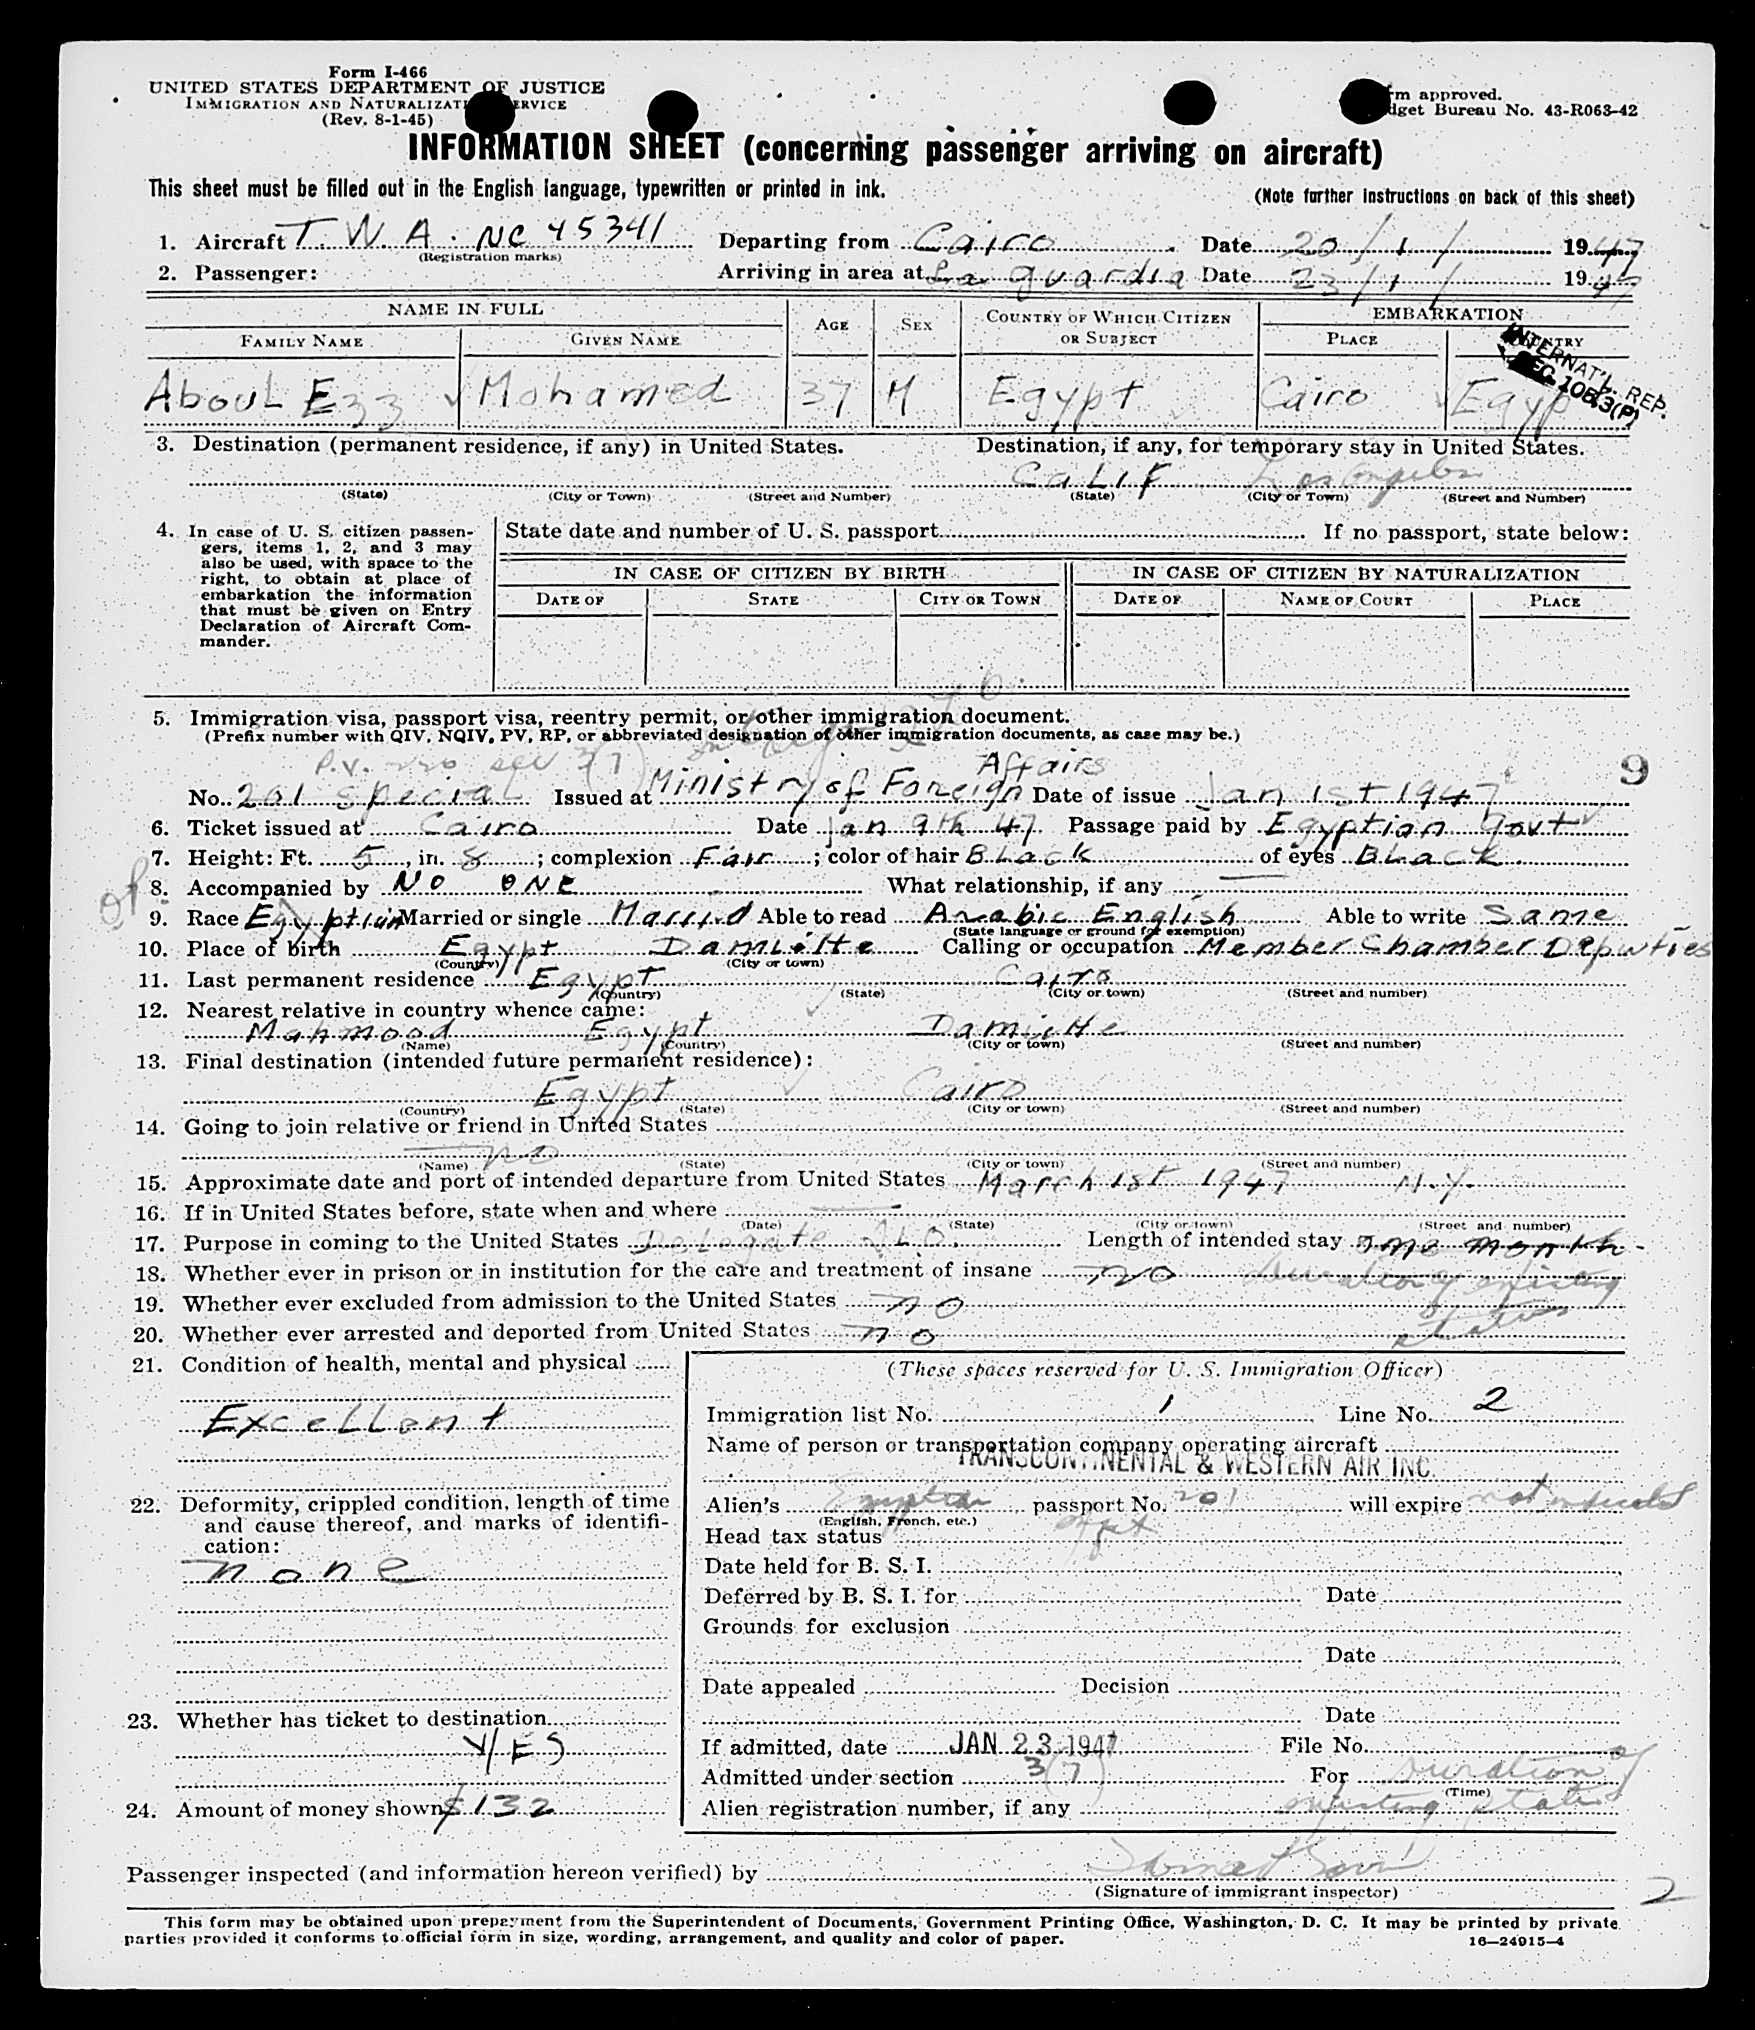 Form I-466
UNITED STATES DEPARTMENT OF JUSTICE
IMMIGRATION AND NATURALIZATI ERVICE
(Rev. 8-1-45)
rm approved.
dget Bureau No. 43-R063-42
INFORMATION SHEET (concerning passenger arriving on aircraft)
This sheet must be filled out in the English language, typewritten or printed in ink.
(Note further instructions on back of this sheet)
1. Aircraft T. W. A. NC 45341 Departing from Cairo Date 20/1/ 1947
(Registration marks)
2. Passenger: Arriving in area at La guardia Date 23/1/ 1947
NAME IN FULL AGE SEX COUNTRY OF WHICH CITIZEN OR SUBJECT EMBARKATION
FAMILY NAME GIVEN NAME PLACE COUNTRY
INTERNAT'L. REP.
SEC. 10B.3(P)
Aboul Ezz Mohamed 37 M Egypt Cairo Egypt
3. Destination (permanent residence, if any) in United States. Destination, if any, for temporary stay in United States.
Calif Los Angeles
(State) (City or Town) (Street and Number) (State) (City or Town) (Street and Number)
4. In case of U. S. citizen passen-
gers, items 1, 2, and 3 may
also be used, with space to the
right, to obtain at place of
embarkation the information
that must be given on Entry
Declaration of Aircraft Com-
mander.
State date and number of U. S. passport If no passport, state below:
IN CASE OF CITIZEN BY BIRTH IN CASE OF CITIZEN BY NATURALIZATION
DATE OF STATE CITY OR TOWN DATE OF NAME OF COURT PLACE
5. Immigration visa, passport visa, reentry permit, or other immigration document.
(Prefix number with QIV, NQIV, PV, RP, or abbreviated designation of other immigration documents, as case may be.)
P.V. 220 sec 3(7)
9
No. 201 special Issued at Ministry of Foreign Affairs Date of issue Jan 1st 1947
6. Ticket issued at Cairo Date Jan 9th 47 Passage paid by Egyptian Govt
7. Height: Ft. 5, in. 8; complexion Fair; color of hair Black of eyes Black
8. Accompanied by No one What relationship, if any
9. Race Egyptian Married or single Married Able to read Arabic English Able to write Same
(State language or ground for exemption)
10. Place of birth Egypt Damiette Calling or occupation Member Chamber Deputies
(Country) (City or town)
11. Last permanent residence Egypt Cairo
(Country) (State) (City or town) (Street and number)
12. Nearest relative in country whence came:
Mahmood Egypt Damiette
(Name) (Country) (City or town) (Street and number)
13. Final destination (intended future permanent residence):
Egypt Cairo
(Country) (State) (City or town) (Street and number)
14. Going to join relative or friend in United States
no
(Name) (State) (City or town) (Street and number)
15. Approximate date and port of intended departure from United States March 1st 1947 N.Y.
16. If in United States before, state when and where
(Date) (State) (City or town) (Street and number)
17. Purpose in coming to the United States Delegate I.L.O. Length of intended stay one month
18. Whether ever in prison or in institution for the care and treatment of insane no duration of existing
19. Whether ever excluded from admission to the United States no
status
20. Whether ever arrested and deported from United States no
21. Condition of health, mental and physical
Excellent
22. Deformity, crippled condition, length of time
and cause thereof, and marks of identifi-
cation:
none
23. Whether has ticket to destination
YES
24. Amount of money shown $132
(These spaces reserved for U. S. Immigration Officer)
Immigration list No. 1 Line No. 2
Name of person or transportation company operating aircraft
TRANSCONTINENTAL & WESTERN AIR INC
Alien's Egyptian passport No. 201 will expire not indicated
(English, French, etc.)
Head tax status
Date held for B. S. I.
Deferred by B. S. I. for Date
Grounds for exclusion
Date
Date appealed Decision
Date
If admitted, date JAN 23 1947 File No.
Admitted under section 3(7) For duration of
(Time)
Alien registration number, if any existing status
Passenger inspected (and information hereon verified) by
(Signature of immigrant inspector)
2
This form may be obtained upon prepayment from the Superintendent of Documents, Government Printing Office, Washington, D. C. It may be printed by private
parties provided it conforms to official form in size, wording, arrangement, and quality and color of paper.
16—24915-4